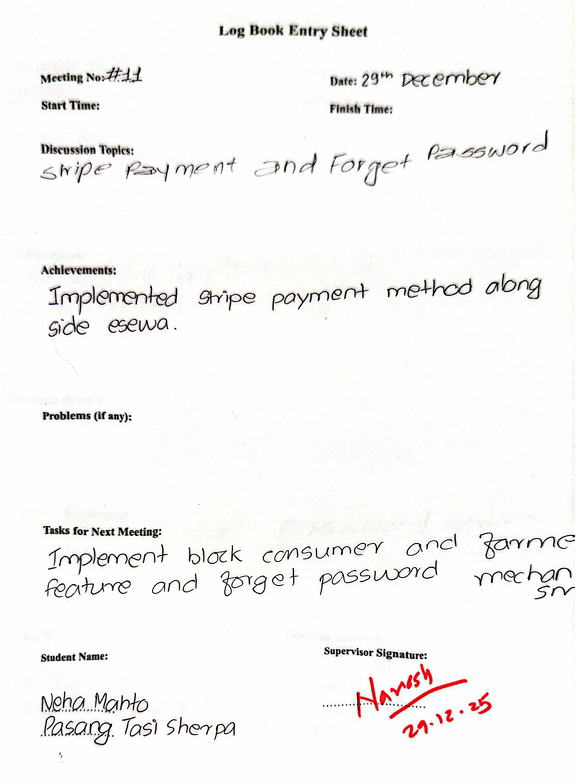 Log Book Entry Sheet
Meeting No: #11
Date: 29th December
Start Time:
Finish Time:
Discussion Topics:
Stripe Payment and Forget Password
Achievements:
Implemented stripe payment method along
side esewa.
Problems (if any):
Tasks for Next Meeting:
Implement block consumer and farme
feature and forget password mechan
sm
Student Name:
Supervisor Signature:
Neha Mahto
Pasang Tasi Sherpa
29.12.25